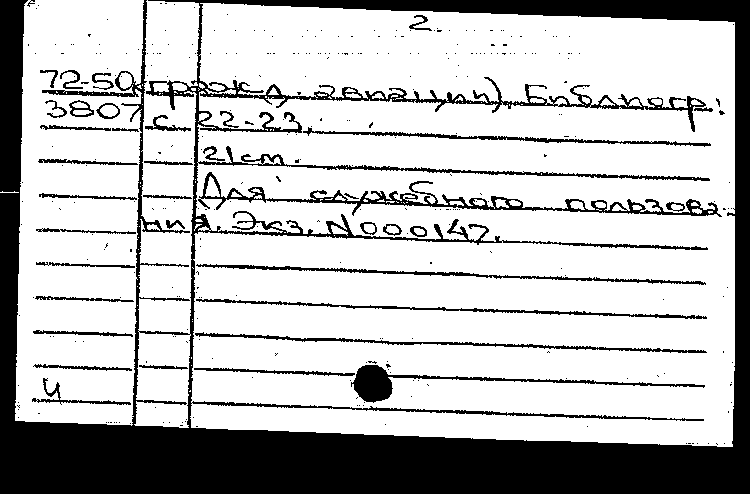 2.
72-50 гражд. авиации). Библиогр:
3807 с. 22-23.
21см.
Для служебного пользова-
ния. Экз. N000147.
И